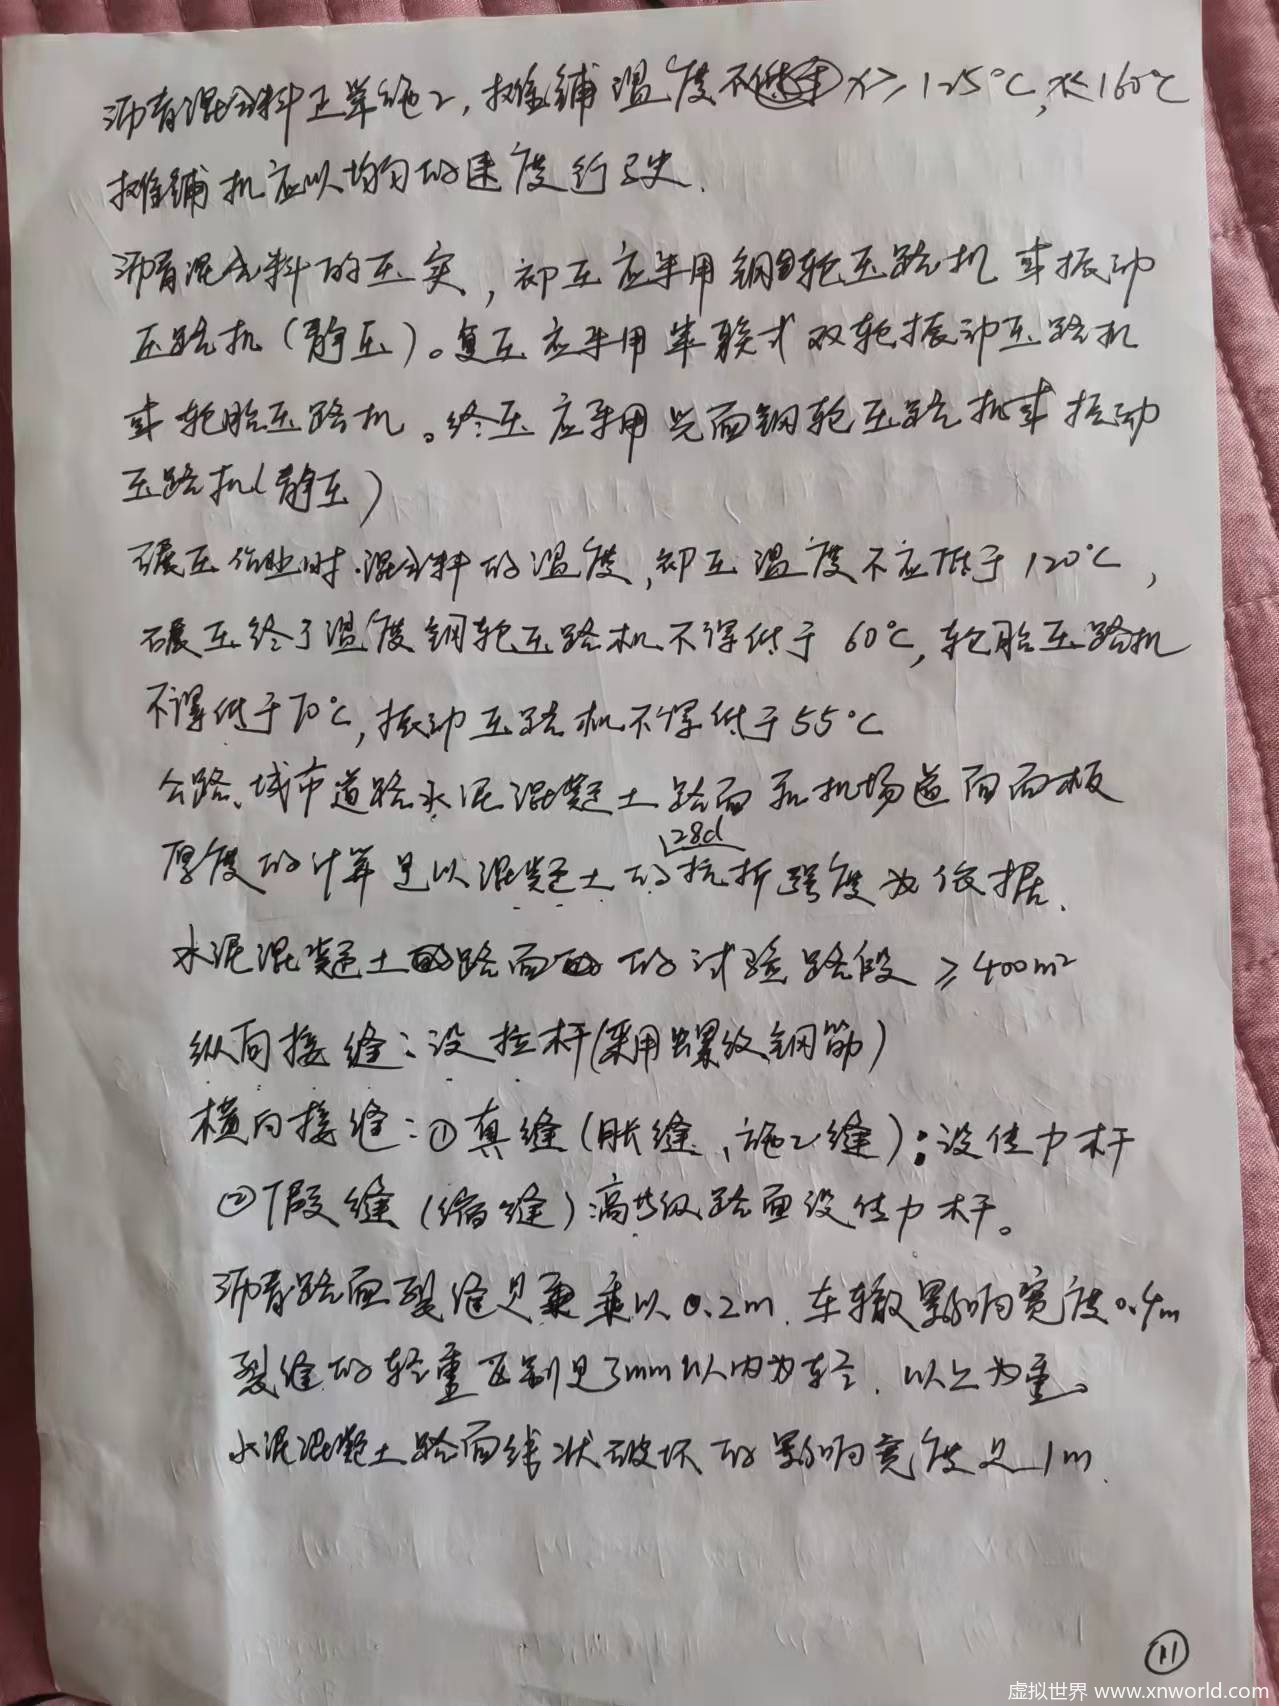 沥青混合料正常施工，摊铺温度不≥125℃，≤160℃
摊铺机应以均匀的速度行驶.
沥青混合料的压实，初压应采用钢轮压路机或振动
压路机（静压）。复压应采用串联式双轮振动压路机
或轮胎压路机。终压应采用光面钢轮压路机或振动
压路机（静压）
碾压作业时.混合料的温度，初压温度不应低于120℃，
碾压终了温度钢轮压路机不得低于60℃，轮胎压路机
不得低于70℃，振动压路机不得低于55℃
公路、城市道路水泥混凝土路面和机场道面面板
28d
厚度的计算是以混凝土的抗折强度为依据.
水泥混凝土路面的试验路段≥400m²
纵向接缝：设拉杆（采用螺纹钢筋）
横向接缝：①真缝（胀缝、施工缝）：设传力杆
②假缝（缩缝）：高等级路面设传力杆。
沥青路面裂缝是乘以0.2m.车辙影响宽度0.4m
裂缝的轻重区别是3mm以内为轻.以上为重。
水泥混凝土路面线状破坏的影响宽度是1m.
11
虚拟世界 www.xnworld.com